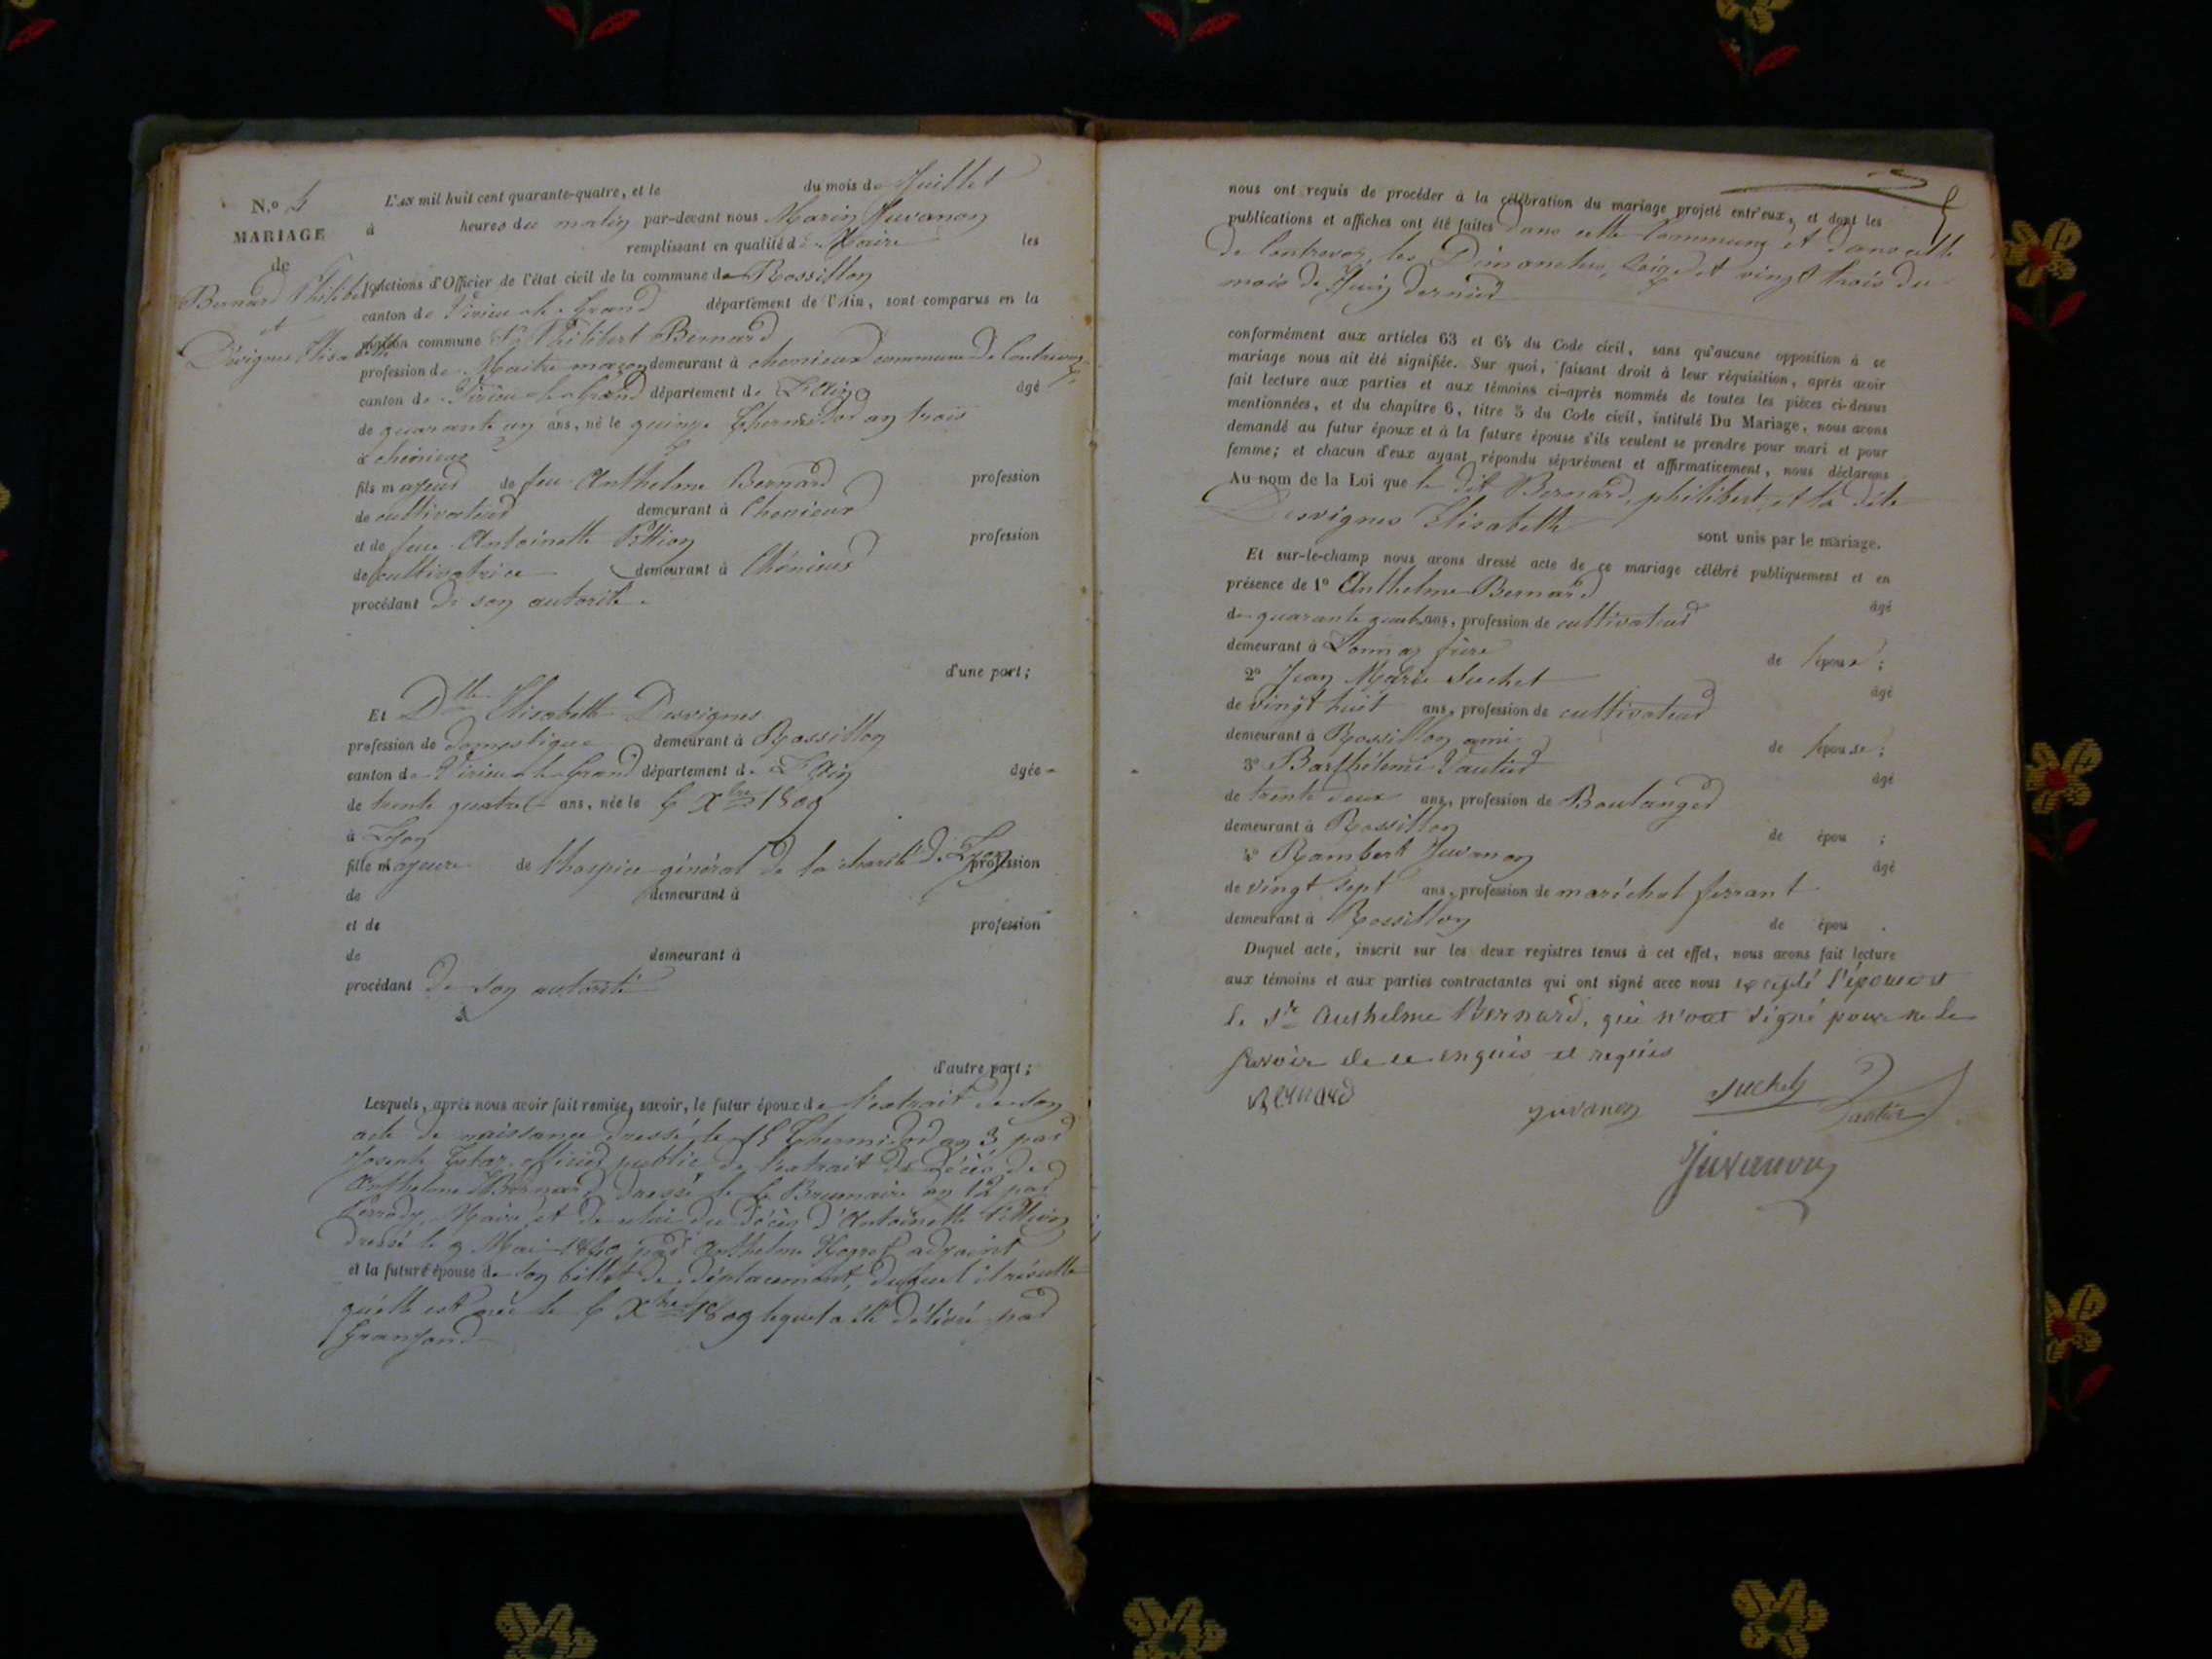 N.º 4
MARIAGE
de
Bernard Philibert
et
Désvignes Elisabeth
L'AN mil huit cent quarante-quatre, et le du mois de Juillet
à heures du matin par-devant nous Marin Juvanon
remplissant en qualité de Maire les
fonctions d'Officier de l'état civil de la commune de Rossillon
canton de Virieu-le-Grand département de l'Ain, sont comparus en la
maison commune Sr Philibert Bernard
profession de Maitre maçon demeurant à chenieur commune de Contrevoz
canton de Virieu-le-Grand département de L'Ain âgé
de quarante un ans, né le quinze Thermidor an trois
à chenieur
fils majeur de feu Anthelme Bernard profession
de cultivateur demeurant à Chenieur
et de feue Antoinette profession
de cultivatrice demeurant à Chénieur
procédant de son autorité
d'une part;
Et Dlle Elisabeth Desvignes
profession de domestique demeurant à Rossillon
canton de Virieu-le-Grand département de L'Ain âgée
de trente quatre ans, née le 6 Xbre 1809
à Lyon
fille majeure de l'hospice général de la charité de Lyon profession
de demeurant à
et de profession
de demeurant à
procédant de son autorité
d'autre part;
Lesquels, après nous avoir fait remise, savoir, le futur époux de l'extrait de son
acte de naissance dressé le 15 Thermidor an 3 par
Joseph officier public, de l'extrait de décès de
Anthelme Bernard dressé le 6 Brumaire an 12 par
Maire, et de celui du décès d'Antoinette
dressé le 9 Mai 1840 par Anthelme adjoint
et la future épouse de son billet de déplacement, duquel il résulte
qu'elle est née le 6 Xbre 1809 lequel a été délivré par
Granjond
nous ont requis de procéder à la célébration du mariage projeté entr'eux, et dont les
publications et affiches ont été faites dans cette Commune et dans celle
de Contrevoz, les Dimanches, seize et vingt trois du
mois de Juin dernier
conformément aux articles 63 et 64 du Code civil, sans qu'aucune opposition à ce
mariage nous ait été signifiée. Sur quoi, faisant droit à leur réquisition, après avoir
fait lecture aux parties et aux témoins ci-après nommés de toutes les pièces ci-dessus
mentionnées, et du chapitre 6, titre 5 du Code civil, intitulé Du Mariage, nous avons
demandé au futur époux et à la future épouse s'ils veulent se prendre pour mari et pour
femme; et chacun d'eux ayant répondu séparément et affirmativement, nous déclarons
Au nom de la Loi que le dit Bernard, philibert, et la dite
Desvignes Elisabeth
sont unis par le mariage.
Et sur-le-champ nous avons dressé acte de ce mariage célébré publiquement et en
présence de 1º Anthelme Bernard âgé
de quarante quatre ans, profession de cultivateur
demeurant à frère de l'époux;
2º Jean Marie Suchet âgé
de vingt huit ans, profession de cultivateur
demeurant à Rossillon ami de l'épouse;
3º Barthélemi Vautier âgé
de trente deux ans, profession de Boulanger
demeurant à Rossillon de épou ;
4º Rambert Juvanon âgé
de vingt sept ans, profession de maréchal ferrant
demeurant à Rossillon de épou .
Duquel acte, inscrit sur les deux registres tenus à cet effet, nous avons fait lecture
aux témoins et aux parties contractantes qui ont signé avec nous excepté l'épouse et
le Sr Anthelme Bernard, qui n'ont signé pour ne le
savoir de ce enquis et requis
Bernard
Juvanon
Suchet
Vautier
Juvanon